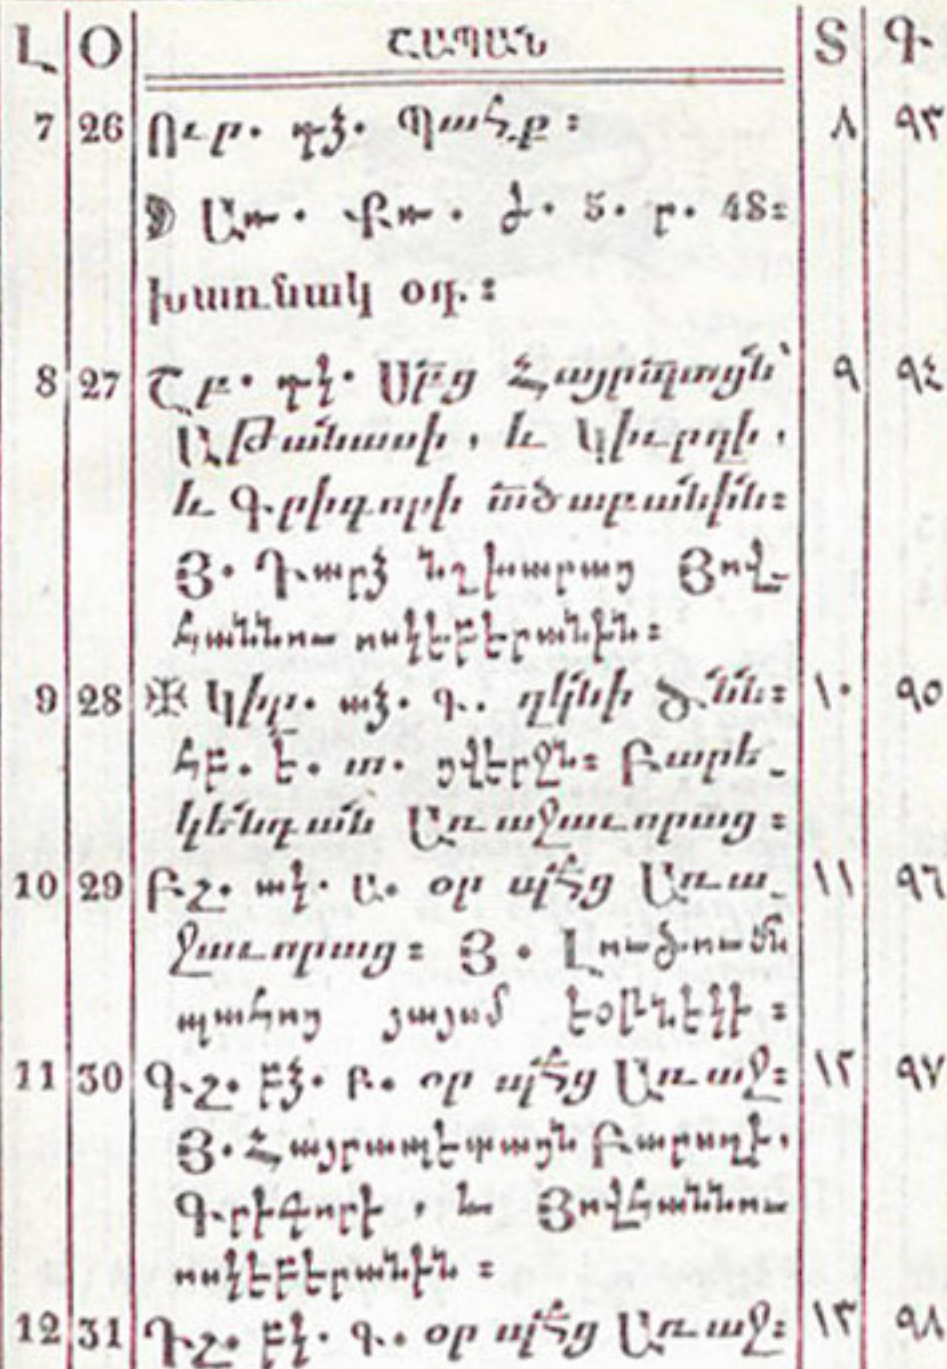 Լ Օ ՇԱՊԱԹ Տ Գ
7 26 Ուր. դձ. Պահք : ٨ ٩٣
Առ. Քռ. ժ. 5. ր. 48:
խառնակ օդ. :
8 27 Շբ. դկ. Սրբց Հայրապտցն՝ ٩ ٩٤
Աթանասի, և Կիւրղի,
և Գրիգորի ածաբանին:
Յ. Դարձ նշխարաց Յով-
հաննու ոսկեբերանին:
9 28 Կիր. աձ. գ. ղկնի ծնն: ١٠ ٩٥
հբ. է. տ. յվերջն: Բարե-
կենդան Առաջաւորաց :
10 29 Բշ. ակ. ա. օր պհց Առա- ١١ ٩٦
ջաւորաց : Յ. Լուծումն
պահոց յայսմ էօթնեկի :
11 30 Գշ. բձ. բ. օր պհց Առաջ: ١٢ ٩٧
Յ. Հայրապետացն Բարսղի,
Գրիգորի, և Յովհաննու
ոսկեբերանին :
12 31 Դշ. բկ. գ. օր պհց Առաջ: ١٣ ٩٨